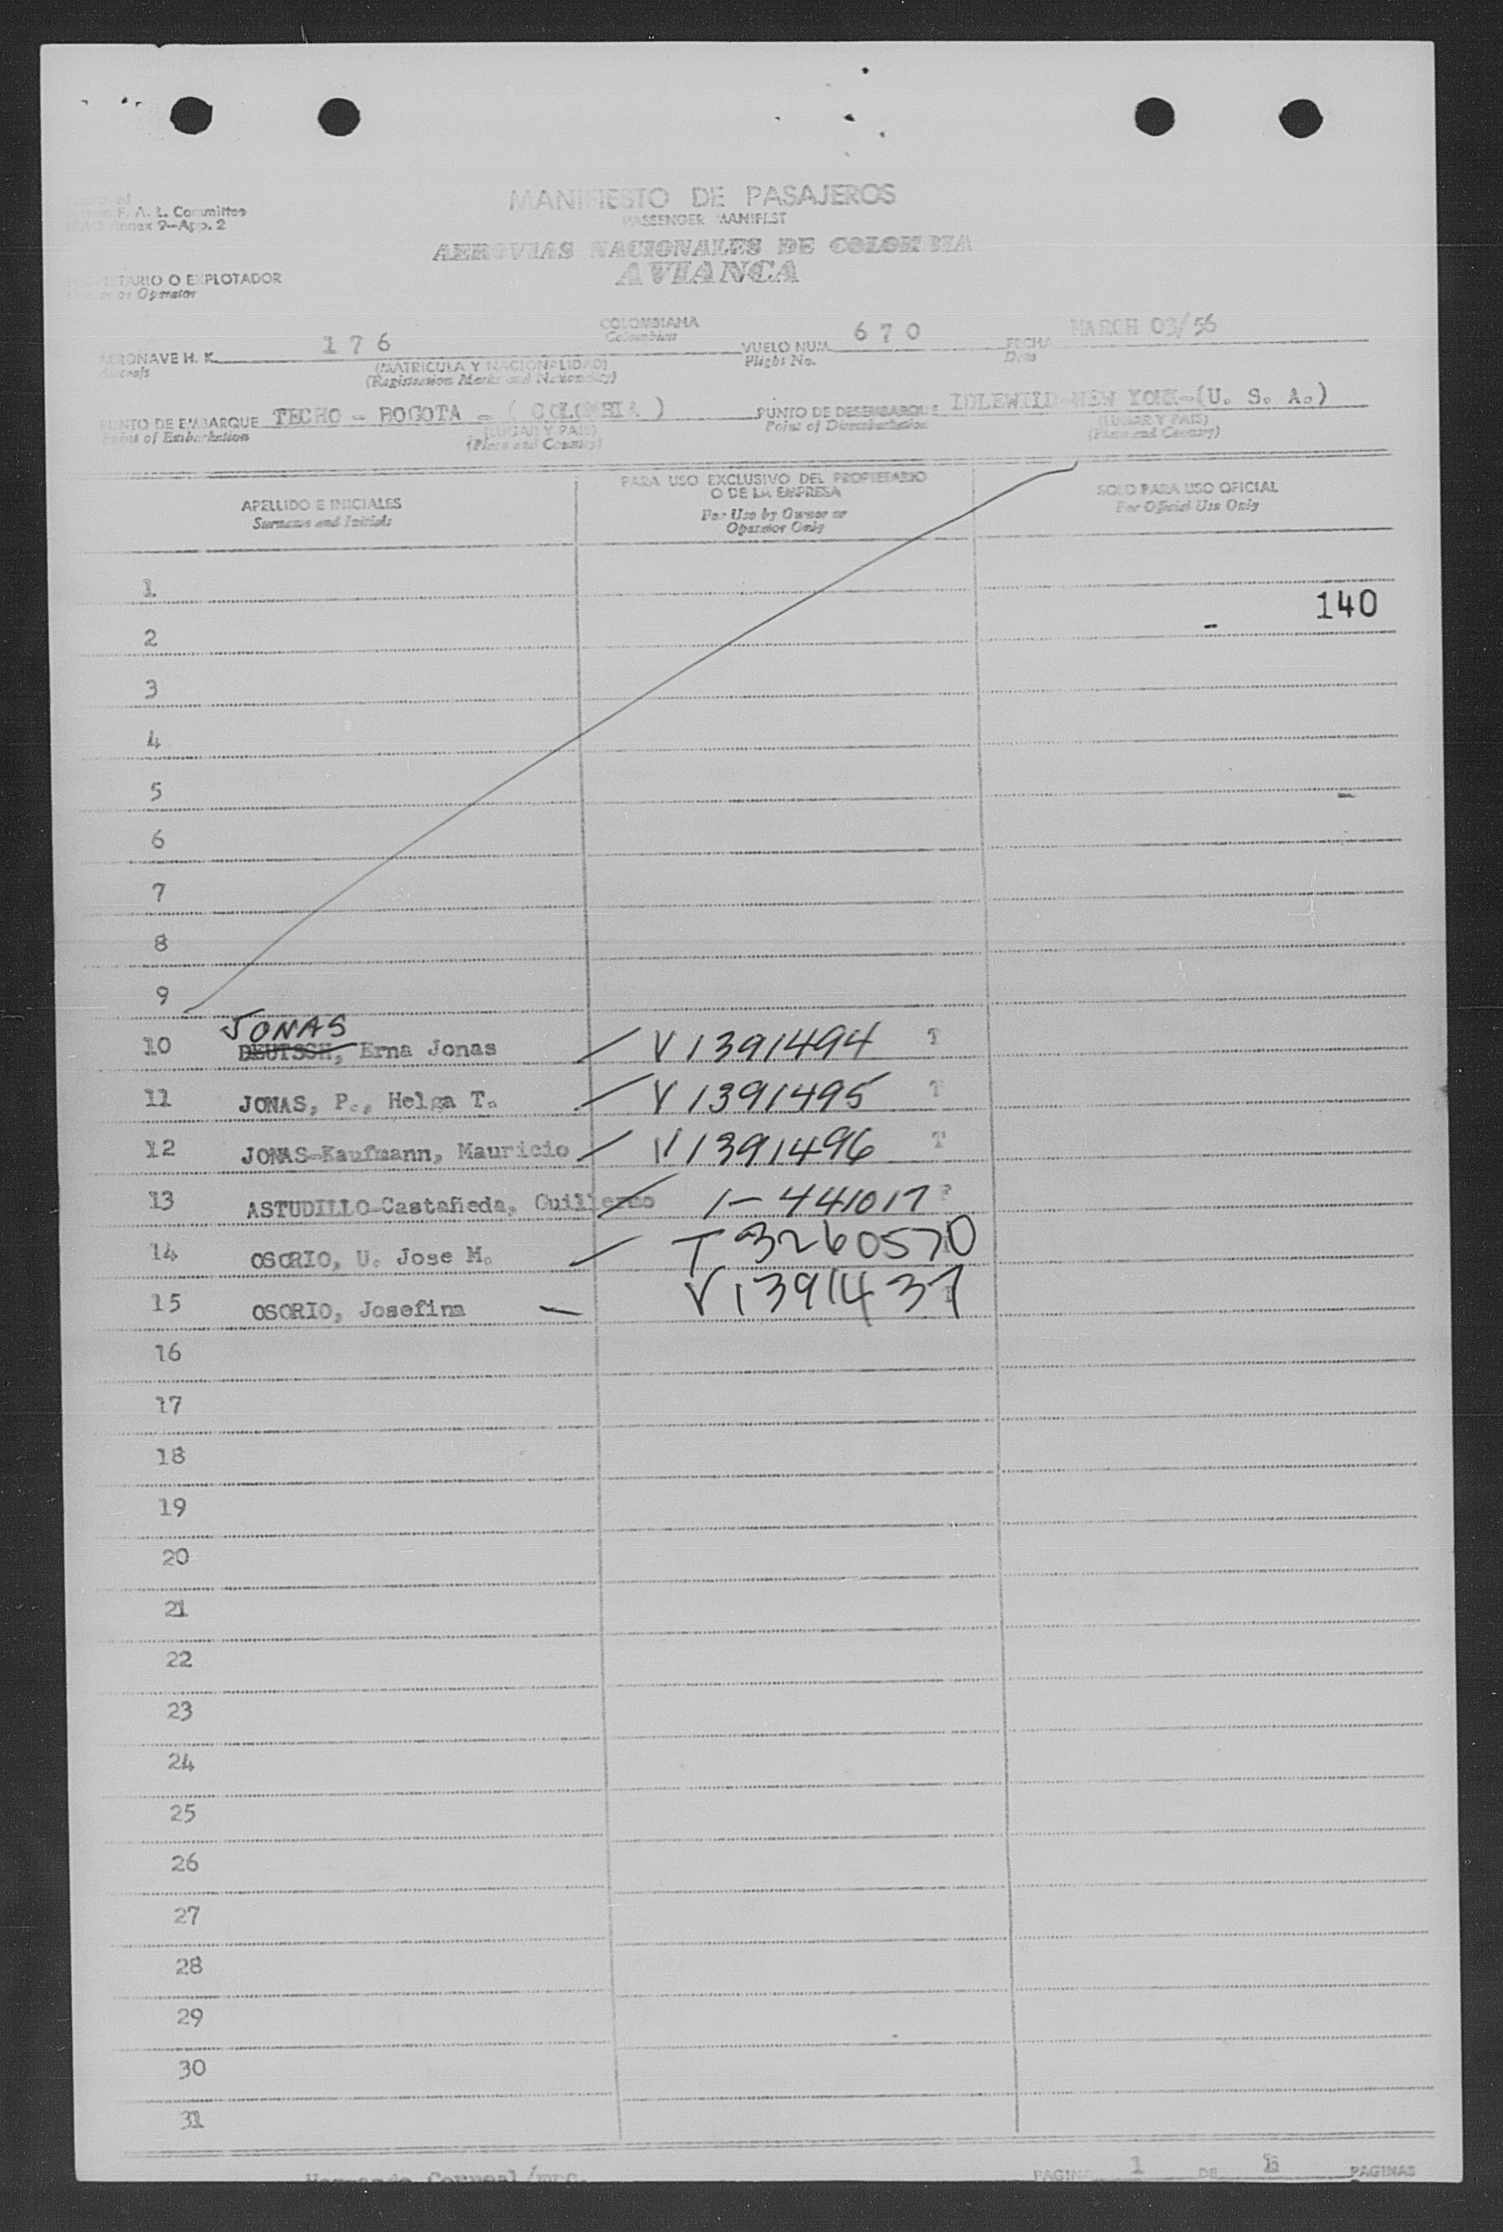 F. A. L. Committee
Annex 9—App. 2
MANIFIESTO DE PASAJEROS
PASSENGER MANIFEST
AEROVIAS NACIONALES DE COLOMBIA
AVIANCA
O EXPLOTADOR
or Operator
AERONAVE H. K. 176 COLOMBIANA VUELO NUM. 670 FECHA MARCH 03/56
Aircraft (MATRICULA Y NACIONALIDAD) Colombian Flight No. Date
(Registration Marks and Nationality)
PUNTO DE EMBARQUE TECHO - BOGOTA - ( COLOMBIA ) PUNTO DE DESEMBARQUE IDLEWILD-NEW YORK-(U. S. A.)
Point of Embarkation (LUGAR Y PAIS) Point of Disembarkation (LUGAR Y PAIS)
(Place and Country) (Place and Country)
APELLIDO E INICIALES
Surname and Initials
PARA USO EXCLUSIVO DEL PROPIETARIO
O DE LA EMPRESA
For Use by Owner or
Operator Only
SOLO PARA USO OFICIAL
For Official Use Only
1
140
2
3
4
5
6
7
8
9
JONAS
10 DEUTSCH, Erna Jonas V1391494 T
11 JONAS, P., Helga T. V1391495 T
12 JONAS-Kaufmann, Mauricio V1391496 T
13 ASTUDILLO-Castañeda, Guillermo 1-441017
14 OSORIO, U. Jose M. T3260570
15 OSORIO, Josefina V1391437
16
17
18
19
20
21
22
23
24
25
26
27
28
29
30
31
PAGINA 1 DE PAGINAS